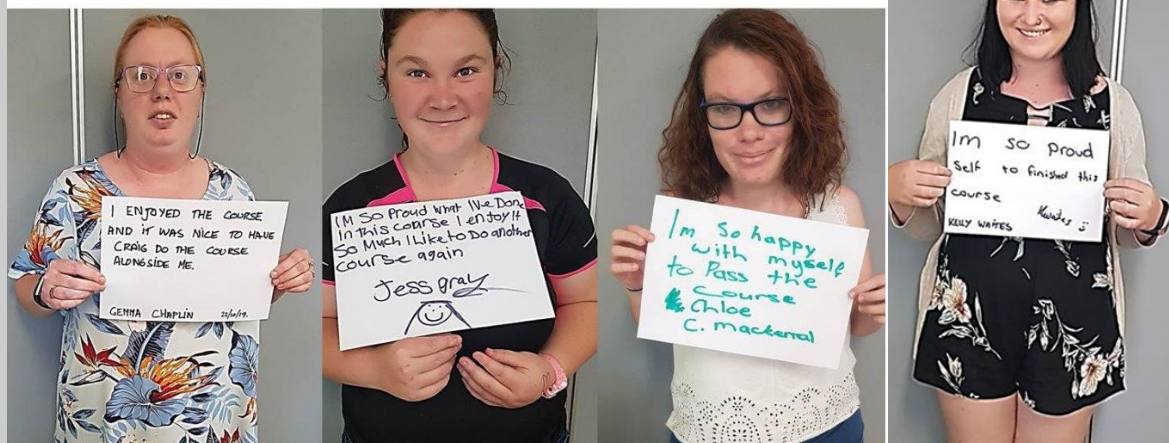 I ENJOYED THE COURSE
AND iT WAS NICE TO HAVE
CRAIG DO THE COURSE
ALONGSIDE ME.
GEMMA CHAPLIN
IM SO Proud what IVe Done
In this course I enjoy It
So Much I Like to Do another
course again
Jess gray
Im So happy
with myself
to Pass the
Course
Chloe
C. mackerral
Im so proud
self to finished this
course
KELLY WAITES Kwaites